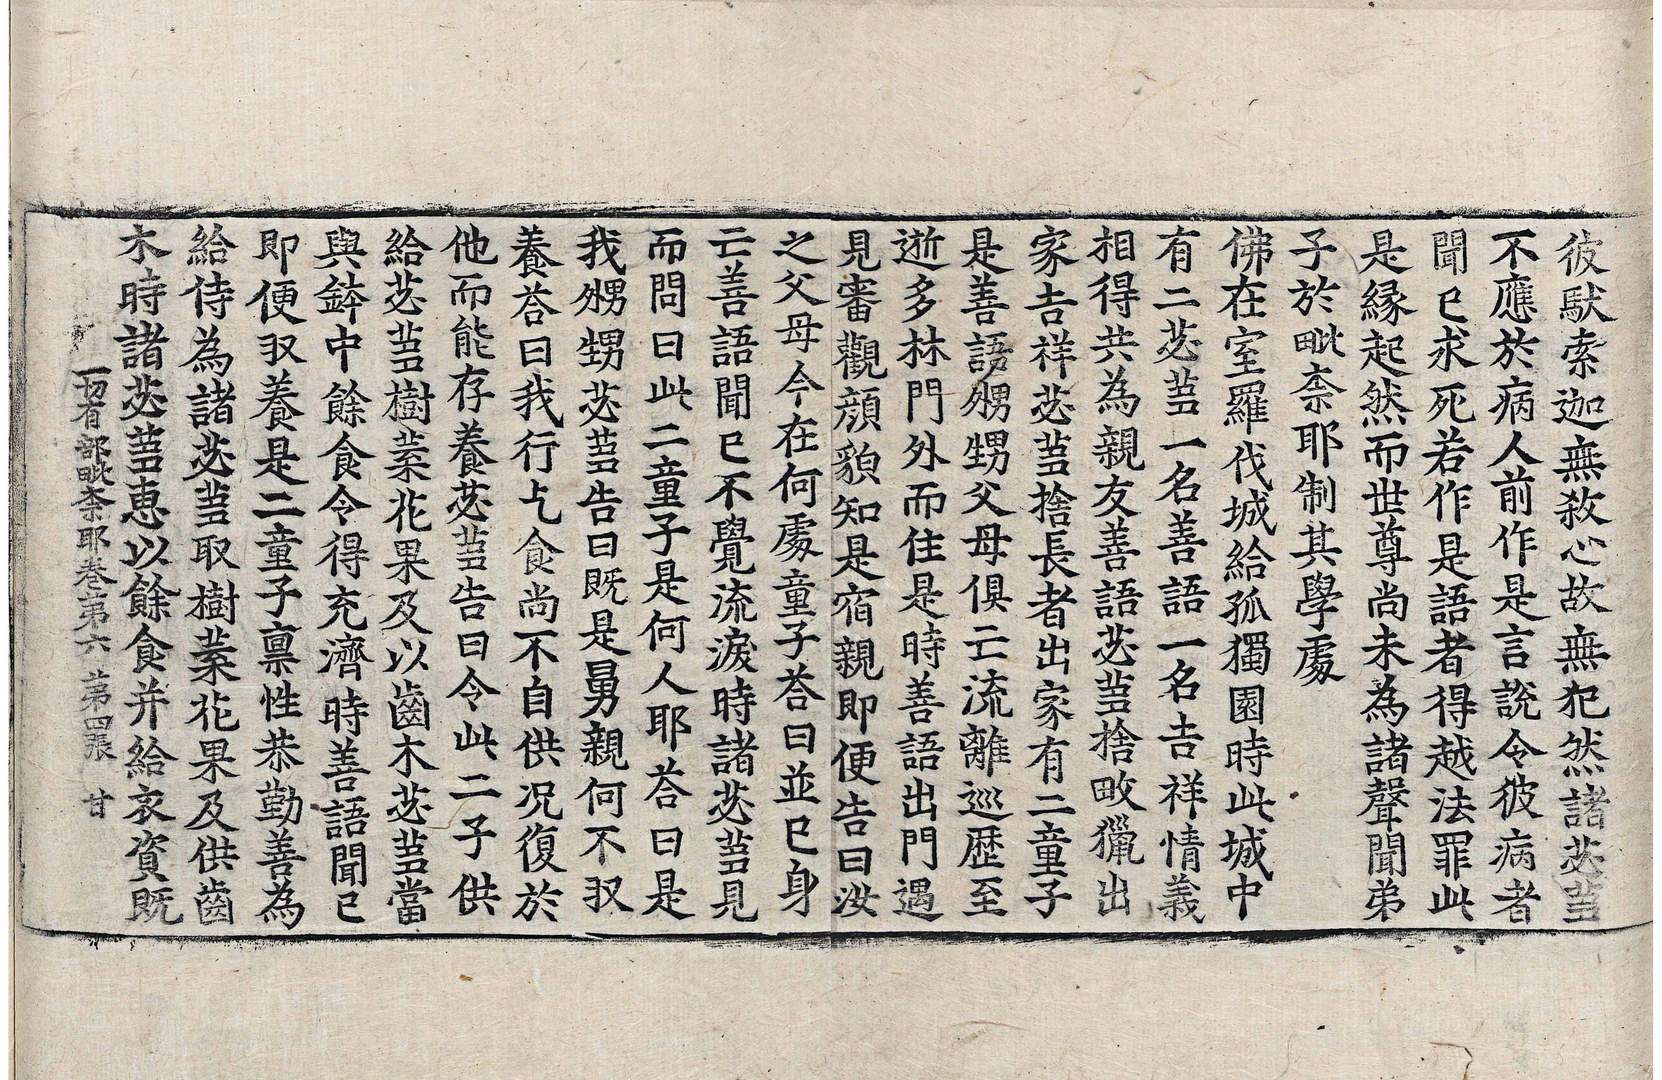 彼馱索迦無殺心故無犯然諸苾芻
不應於病人前作是言說令彼病者
聞已求死若作是語者得越法罪此
是緣起然而世尊尚未為諸聲聞弟
子於毗柰耶制其學處
佛在室羅伐城給孤獨園時此城中
有二苾芻一名善語一名吉祥情義
相得共為親友善語苾芻捨畋獵出
家吉祥苾芻捨長者出家有二童子
是善語甥甥父母俱亡流離巡歷至
逝多林門外而住是時善語出門遇
見審觀顏貌知是宿親即便告曰汝
之父母今在何處童子荅曰並已身
亡善語聞已不覺流淚時諸苾芻見
而問曰此二童子是何人耶荅曰是
我甥甥苾芻告曰既是舅親何不収
養荅曰我行乞食尚不自供況復於
他而能存養苾芻告曰今此二子供
給苾芻樹葉花果及以齒木苾芻當
與鉢中餘食令得充濟時善語聞已
即便収養是二童子稟性恭勤善為
給侍為諸苾芻取樹葉花果及供齒
木時諸苾芻恵以餘食并給衣資既
一切有部毗柰耶卷第六 苐四張 甘